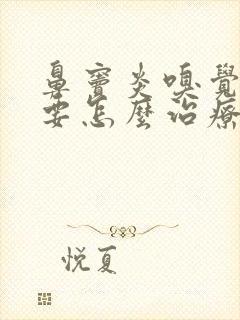 鼻竇炎嗅覺
要怎麼治療
悅夏